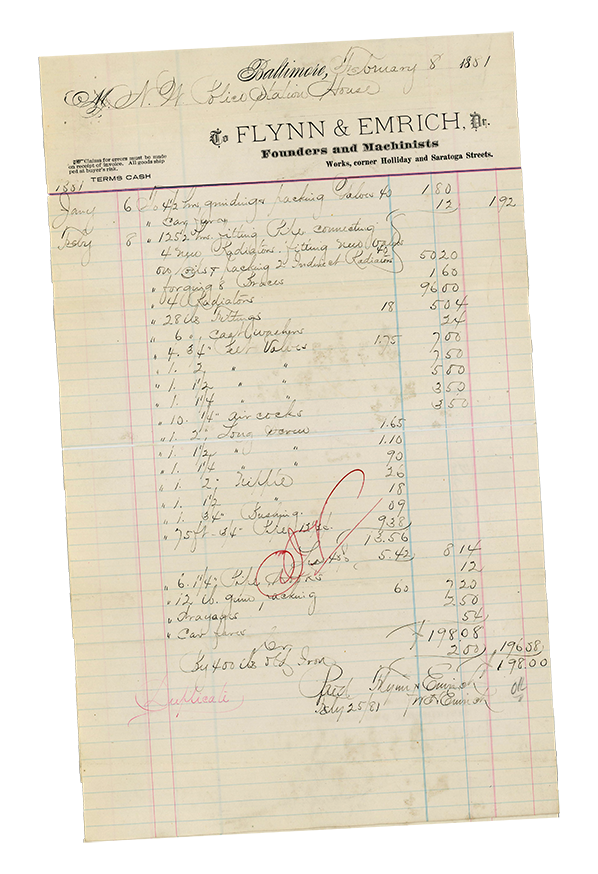 Baltimore, February 8 1881
M N. W Police Station House
To FLYNN & EMRICH, Dr.
Founders and Machinists
Works, corner Holliday and Saratoga Streets.
Claims for errors must be made
on receipt of invoice. All goods ship
ped at buyer's risk.
TERMS CASH
1881
Jany 6 To 4½ hrs grinding & packing Valves 40 1 80
" Car fare 12 1 92
Feby 8 " 125½ hrs fitting Pipe connecting
4 new Radiators. fitting new Valves
on & packing 2 Indirect Radiators 40 50 20
" forging 8 Braces 1 60
" 4 Radiators 96 00
" 28 lbs fittings 18 5 04
" 6 " Cast washers 24
" 4. 3/4" Valves 1.75 7 00
" 1. 2" " " 7 50
" 1. 1½ " " 5 00
" 1. 1¼ " " 3 50
" 10. ¼" air cocks 3 50
" 1. 2" Long 1.65
" 1. 1½ " " 1.10
" 1. 1¼ " " 90
" 1. 2" Nipple 26
" 1. 1½ " 18
" 1. 3/4" Bushing. 09
" 75 ft. 3/4" Pipe 12½c. 9 38
13.56
Less 40% 5.42 8 14
" 6. 1¼" Pipe 12
" 12 lb. gum packing 60 7 20
" Drayage 2 50
" Car fares 54
198 08
Cr
By 400 lbs old Iron 2 00 196.08
$198.00
Duplicate
Recd Flynn & Emrich
July 25/81